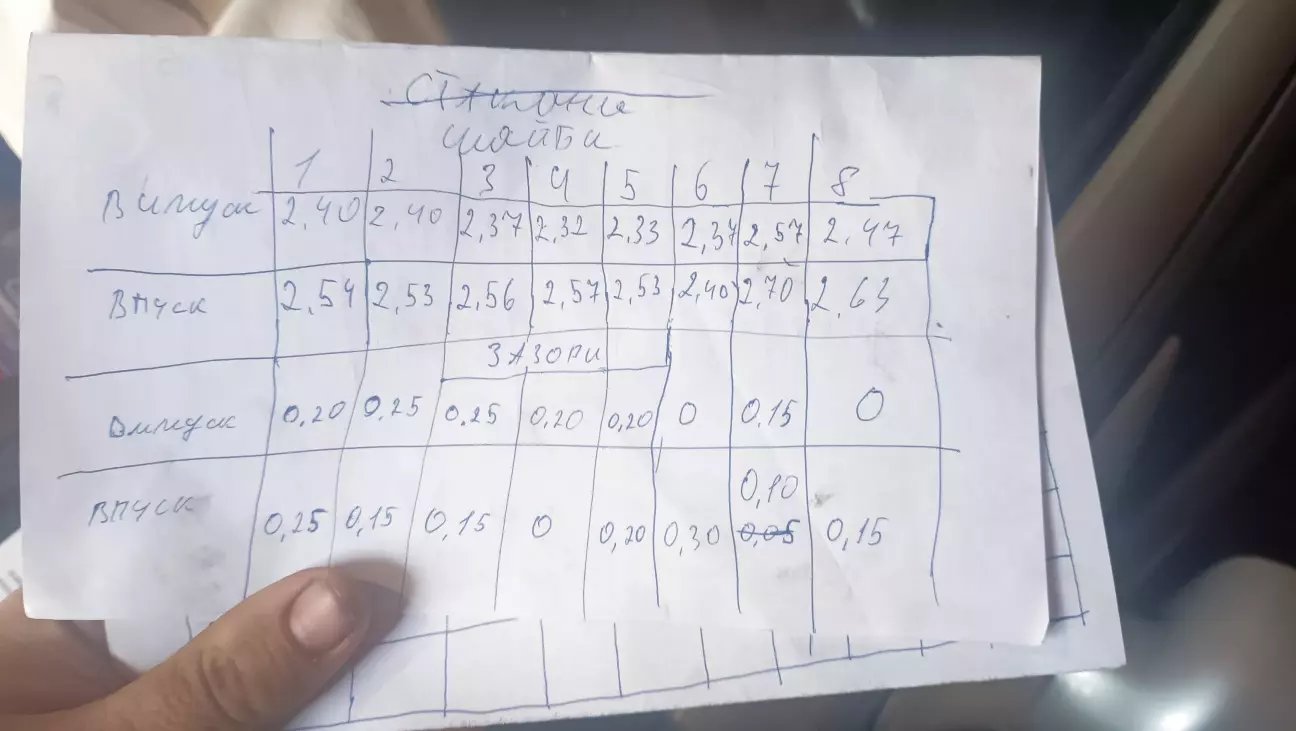 Стакани
шайби
1 2 3 4 5 6 7 8
Випуск 2,40 2,40 2,37 2,32 2,33 2,37 2,57 2.47
Впуск 2,54 2,53 2,56 2,57 2,53 2,40 2,70 2,63
Зазори
Випуск 0,20 0,25 0.25 0,20 0,20 0 0.15 0
0,10
Впуск 0,25 0,15 0,15 0 0,20 0,30 0,05 0,15